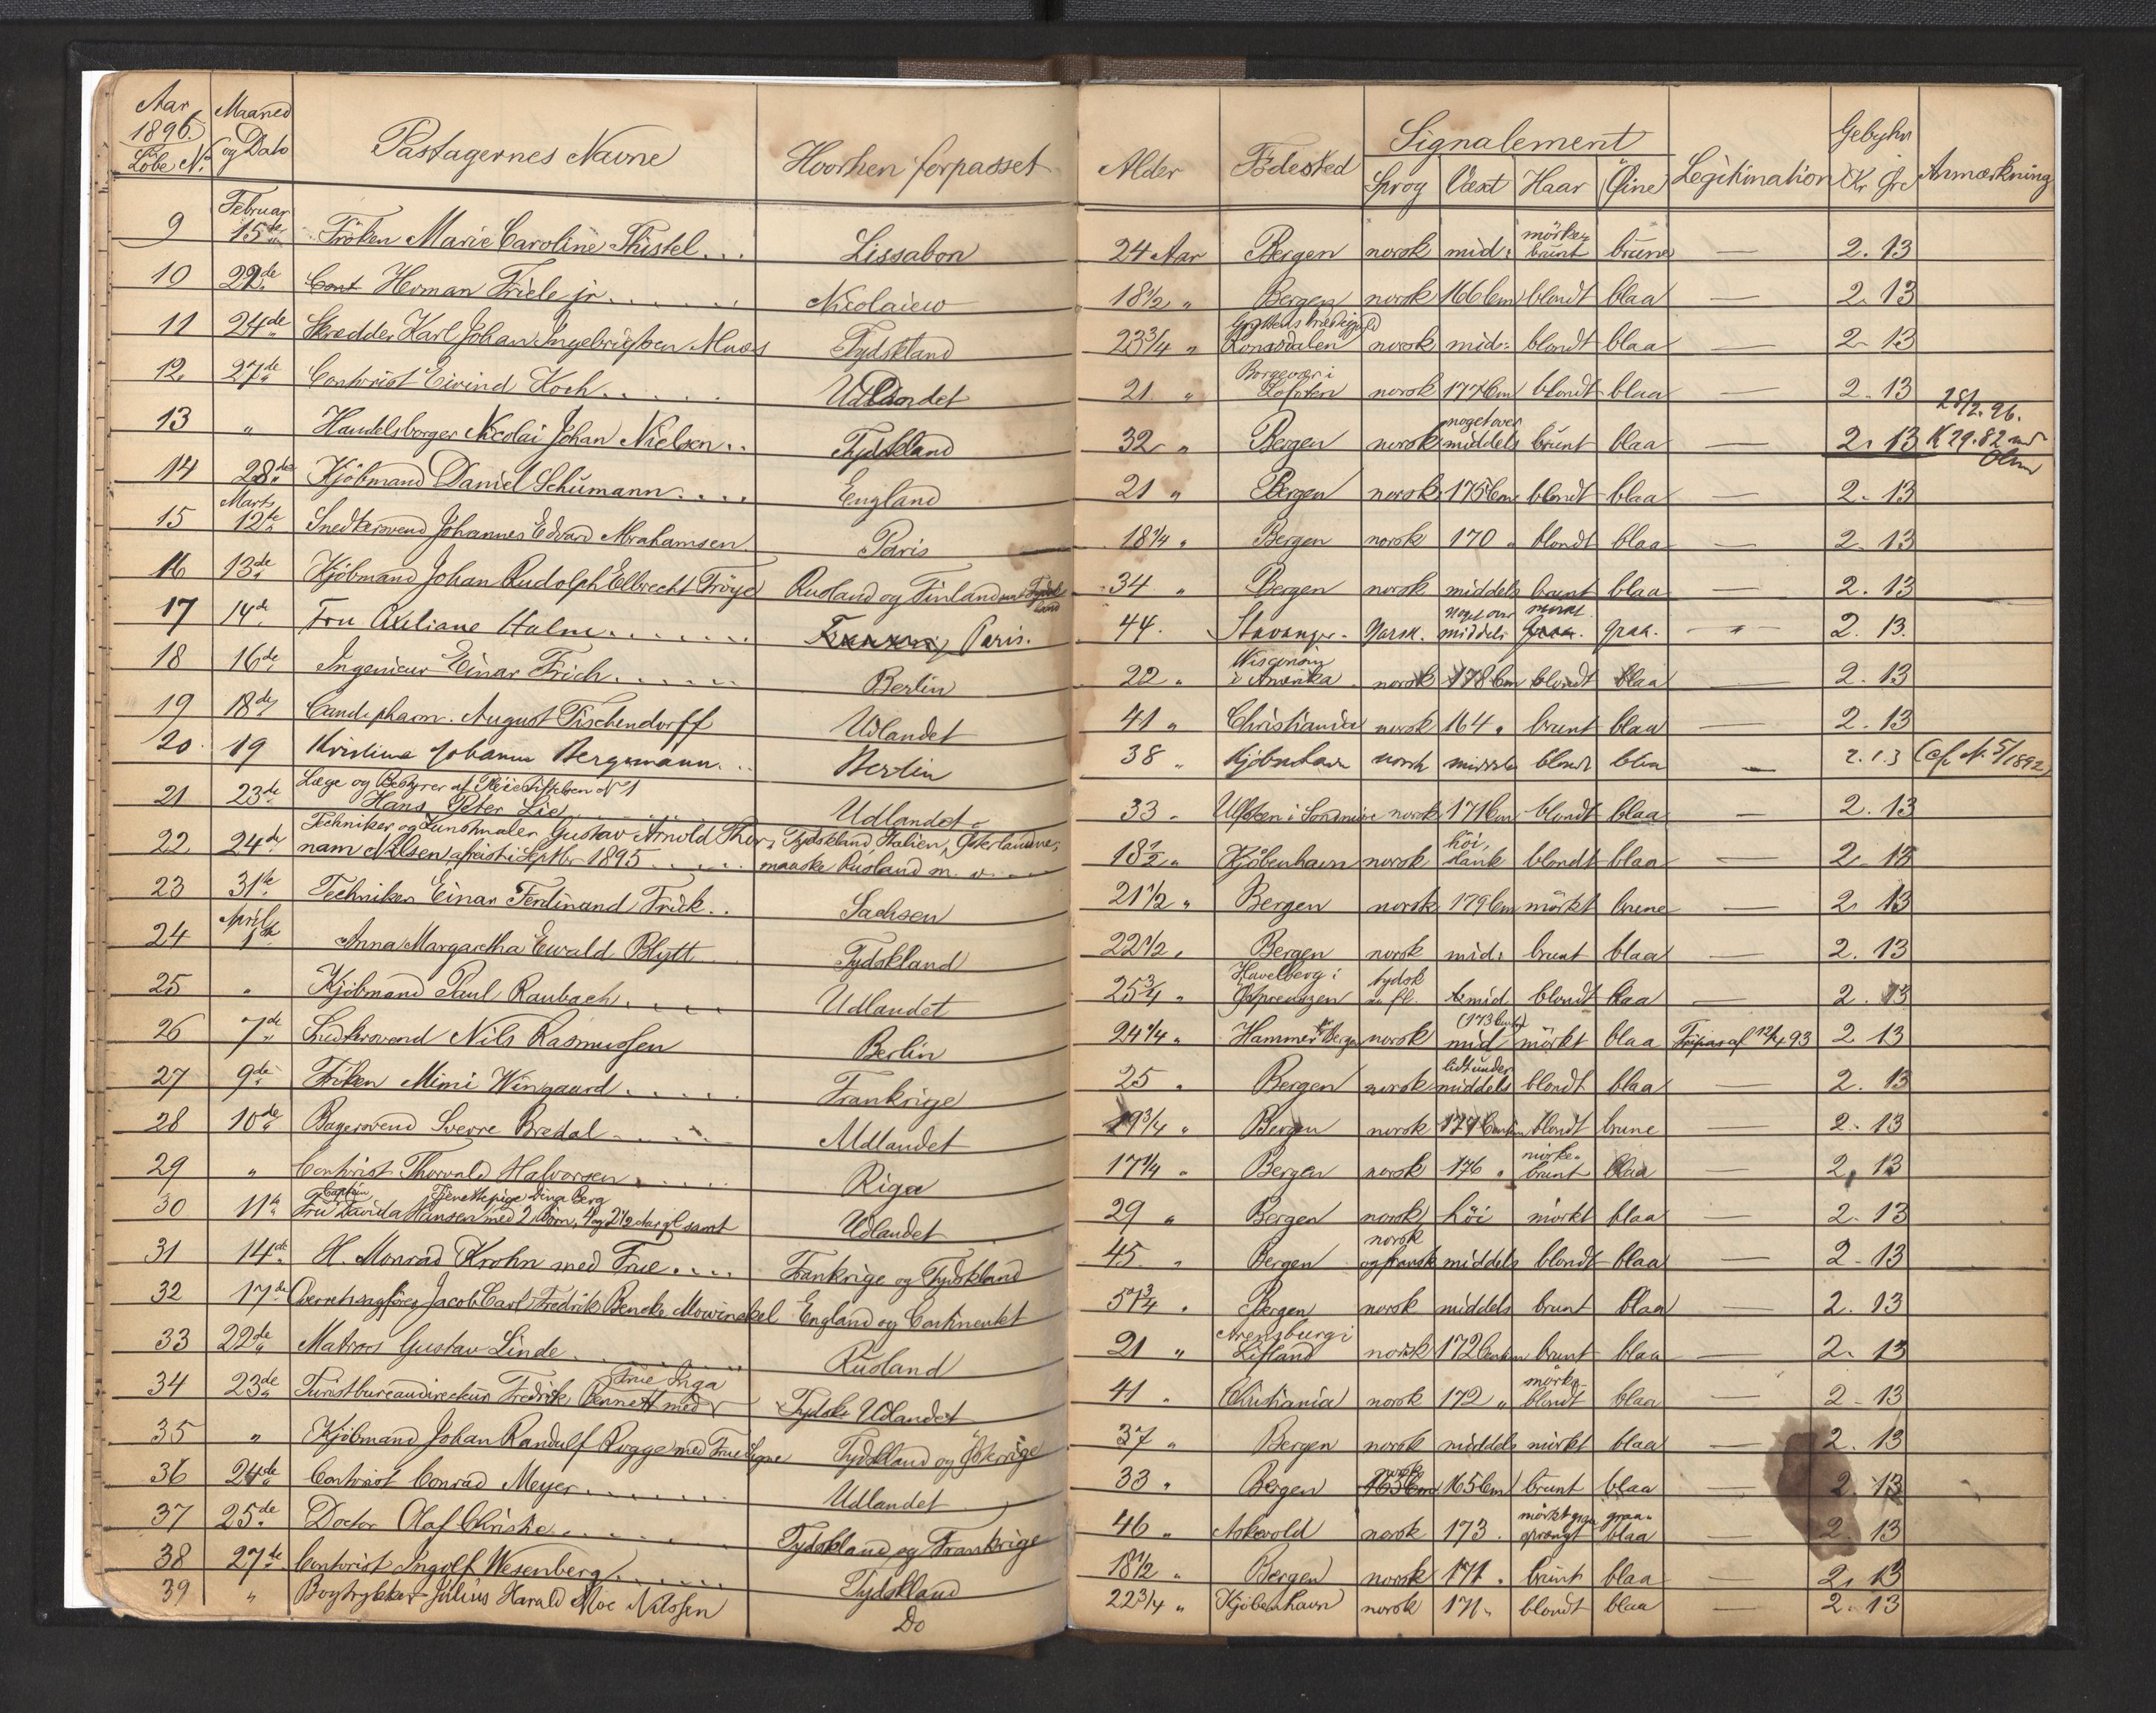 Aar Maaned
1896. og Dato Passagernes Navne Hvorhen forpasset Alder Födested Signalement Legitimation Gebyhr Anmærkning
Löbe No. Sprog Væxt Haar Öine Kr Öre
Februar
9 15de Fröken Marie Caroline Thistel... Lissabon 24 Aar Bergen norsk mid: mörke- brunt brune — 2. 13
10 22de Herman Friele jr...... Nicolaiew 18 1/2 " Bergen norsk 166 Cm blondt blaa — 2. 13
11 24de Skrædder Karl Johan Ingebrigtsen Tydskland 23 3/4 " Romsdalen norsk mid: blondt blaa — 2. 13
12. 27de Contorist Eivind Koch..... Udlandet 21 " i Lofoten norsk 177 Cm blondt blaa — 2. 13
13 " Handelsborger Nicolai Johan Nielsen.. Tydskland 32 " Bergen norsk noget over middels brunt blaa — 2. 13 28/2. 96. K 29.82
14 28de Kjöbmand Daniel Schumann.... England 21 " Bergen norsk 175 Cm blondt blaa — 2. 13
Marts
15 12te Snedkersvend Johannes Edvard Abrahamsen Paris 18 1/4 " Bergen norsk 170 " blondt blaa — 2. 13
16 13de Kjöbmand Johan Rudolph Ellbrecht Fröye Rusland og Finland Tydskland 34 " Bergen norsk middels brunt blaa — 2. 13
17 14de Fru Holm....... Paris. 44. Stavanger. norsk. noget over middels mörkt graa. — 2. 13.
18 16de Ingenieur Einar Frich...... Berlin 22 " Wisconsin i Amerika norsk 178 Cm blondt blaa — 2. 13
19 18de Cand. pharm. August Tischendorff Udlandet 41 " Christiania norsk 164 " brunt blaa — 2. 13
20. 19 Kristine Johanne Bergmann... Berlin 38 " Kjöbenhavn norsk middels blondt blaa — 2. 13 (cfr No. 5/1892)
21 23de Læge og Bestyrer af Pleiestiftelsen No 1 Hans Peter Lie Udlandet 33 " Ulfsten i Söndmöre norsk 171 Cm blondt blaa — 2. 13
22. 24de Techniker og Kunstmaler Gustav Arnold Thor- Tydskland Italien, Österlandene,
nam Nilsen, afreist i Septbr 1895..... maaske Rusland m. v. 18 1/2 " Kjöbenhavn norsk höi, slank blondt blaa — 2. 13
23 31te Techniker Einar Ferdinand Frick.. Sachsen 21 1/2 " Bergen norsk 179 Cm mörkt brune — 2. 13
April
24 1ste Anna Margaretha Ewald Blytt Tydskland 22 1/2 " Bergen norsk mid: brunt blaa — 2. 13
25 " Kjöbmand Paul Raubach..... Udlandet 25 3/4 " Havelberg i tydsk mid blondt blaa — 2. 13
26 7de Snedkersvend Nils Rasmussen Berlin 24 1/4 " Hammer Bergen norsk mid mörkt blaa 2 13
27 9de Fröken Mimi Wingaard..... Frankrige 25 " Bergen norsk lidt under middels blondt blaa — 2. 13
28 10de Bagersvend Sverre Bredal..... Udlandet 19 3/4 " Bergen norsk blondt brune — 2. 13
29 " Contorist Thorvald Halvorsen..... Riga 17 1/4 " Bergen norsk 176 " mörke- brunt blaa — 2. 13
30 11te Captein Tjenestepige Dina Berg
Fru Davida Hansen med 2 Börn, 4 og 2 1/2 Aar gl samt Udlandet 29 " Bergen norsk höi mörkt blaa — 2. 13
31 14de H. Monrad Krohn med Frue.... Frankrige og Tydskland 45 " Bergen norsk og fransk middels blondt blaa — 2. 13
32 17de Overretssagförer Jacob Carl Fredrik Beneke Mowinckel England og Continentet 57 3/4 " Bergen norsk middels brunt blaa — 2. 13
33 22de Matros Gustav Linde Rusland 21 " Arensburg i Lifland norsk 172 brunt blaa — 2. 13
34 23de Turistbureaudirecteur Fredrik Bennett med Frue Inga Tydsk- Udlandet 41 " Christiania norsk 172 " mörke- blondt blaa — 2. 13
35 " Kjöbmand Johan Randulf Rogge med Frue Signe Tydskland og Östrige 37 " Bergen norsk middels mörkt blaa — 2. 13
36 24de Contorist Conrad Meyer....... Udlandet 33 " Bergen norsk 165 Cm brunt blaa — 2. 13
37 25de Doctor Olaf Christie...... Tydskland og Frankrige 46 " Askevold norsk 173 " mörkt sprængt graa- blaa — 2. 13
38 27de Contorist Ingolf Wesenberg...... Tydskland 18 1/2 " Bergen norsk 171 " brunt blaa — 2. 13
39 " Bogtrykker Julius Harald Moe Nilssen Do 22 3/4 " Kjöbenhavn norsk 171 " blondt blaa — 2. 13